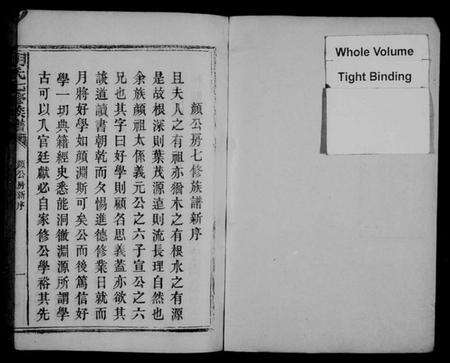 顔公房七修族譜新序
且夫人之有祖亦猶木之有根水之有源
是故根深則葉茂源遠則流長理自然也
余族顔祖太係義元公之六子宣公之六
兄也其字曰好學則顧名思義蓋亦欲其
談道讀書朝乾而夕惕進德修業日就而
月將好學如顔淵斯可矣公而後篤信好
學一切典籍經史悉能洞微淵源所謂學
古可以入官廷獻必自家修公學裕其先
氏七修族譜
顔公房新序
Whole Volume
Tight Binding